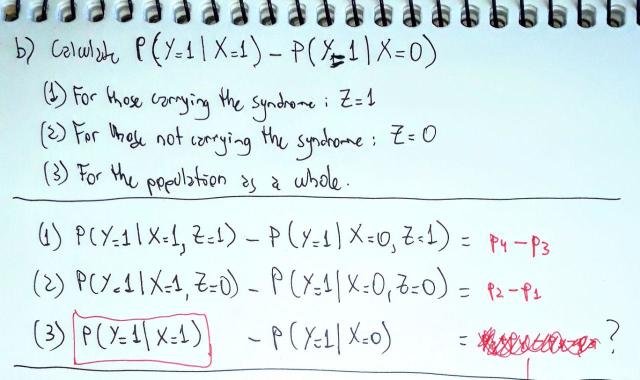 b) Calculate P(Y=1 | X=1) - P(Y=1 | X=0)
(1) For those carrying the syndrome: Z=1
(2) For those not carrying the syndrome: Z=0
(3) For the population as a whole.
(1) P(Y=1 | X=1, Z=1) - P(Y=1 | X=0, Z=1) = P4 - P3
(2) P(Y=1 | X=1, Z=0) - P(Y=1 | X=0, Z=0) = P2 - P1
(3) P(Y=1 | X=1) - P(Y=1 | X=0) = ?